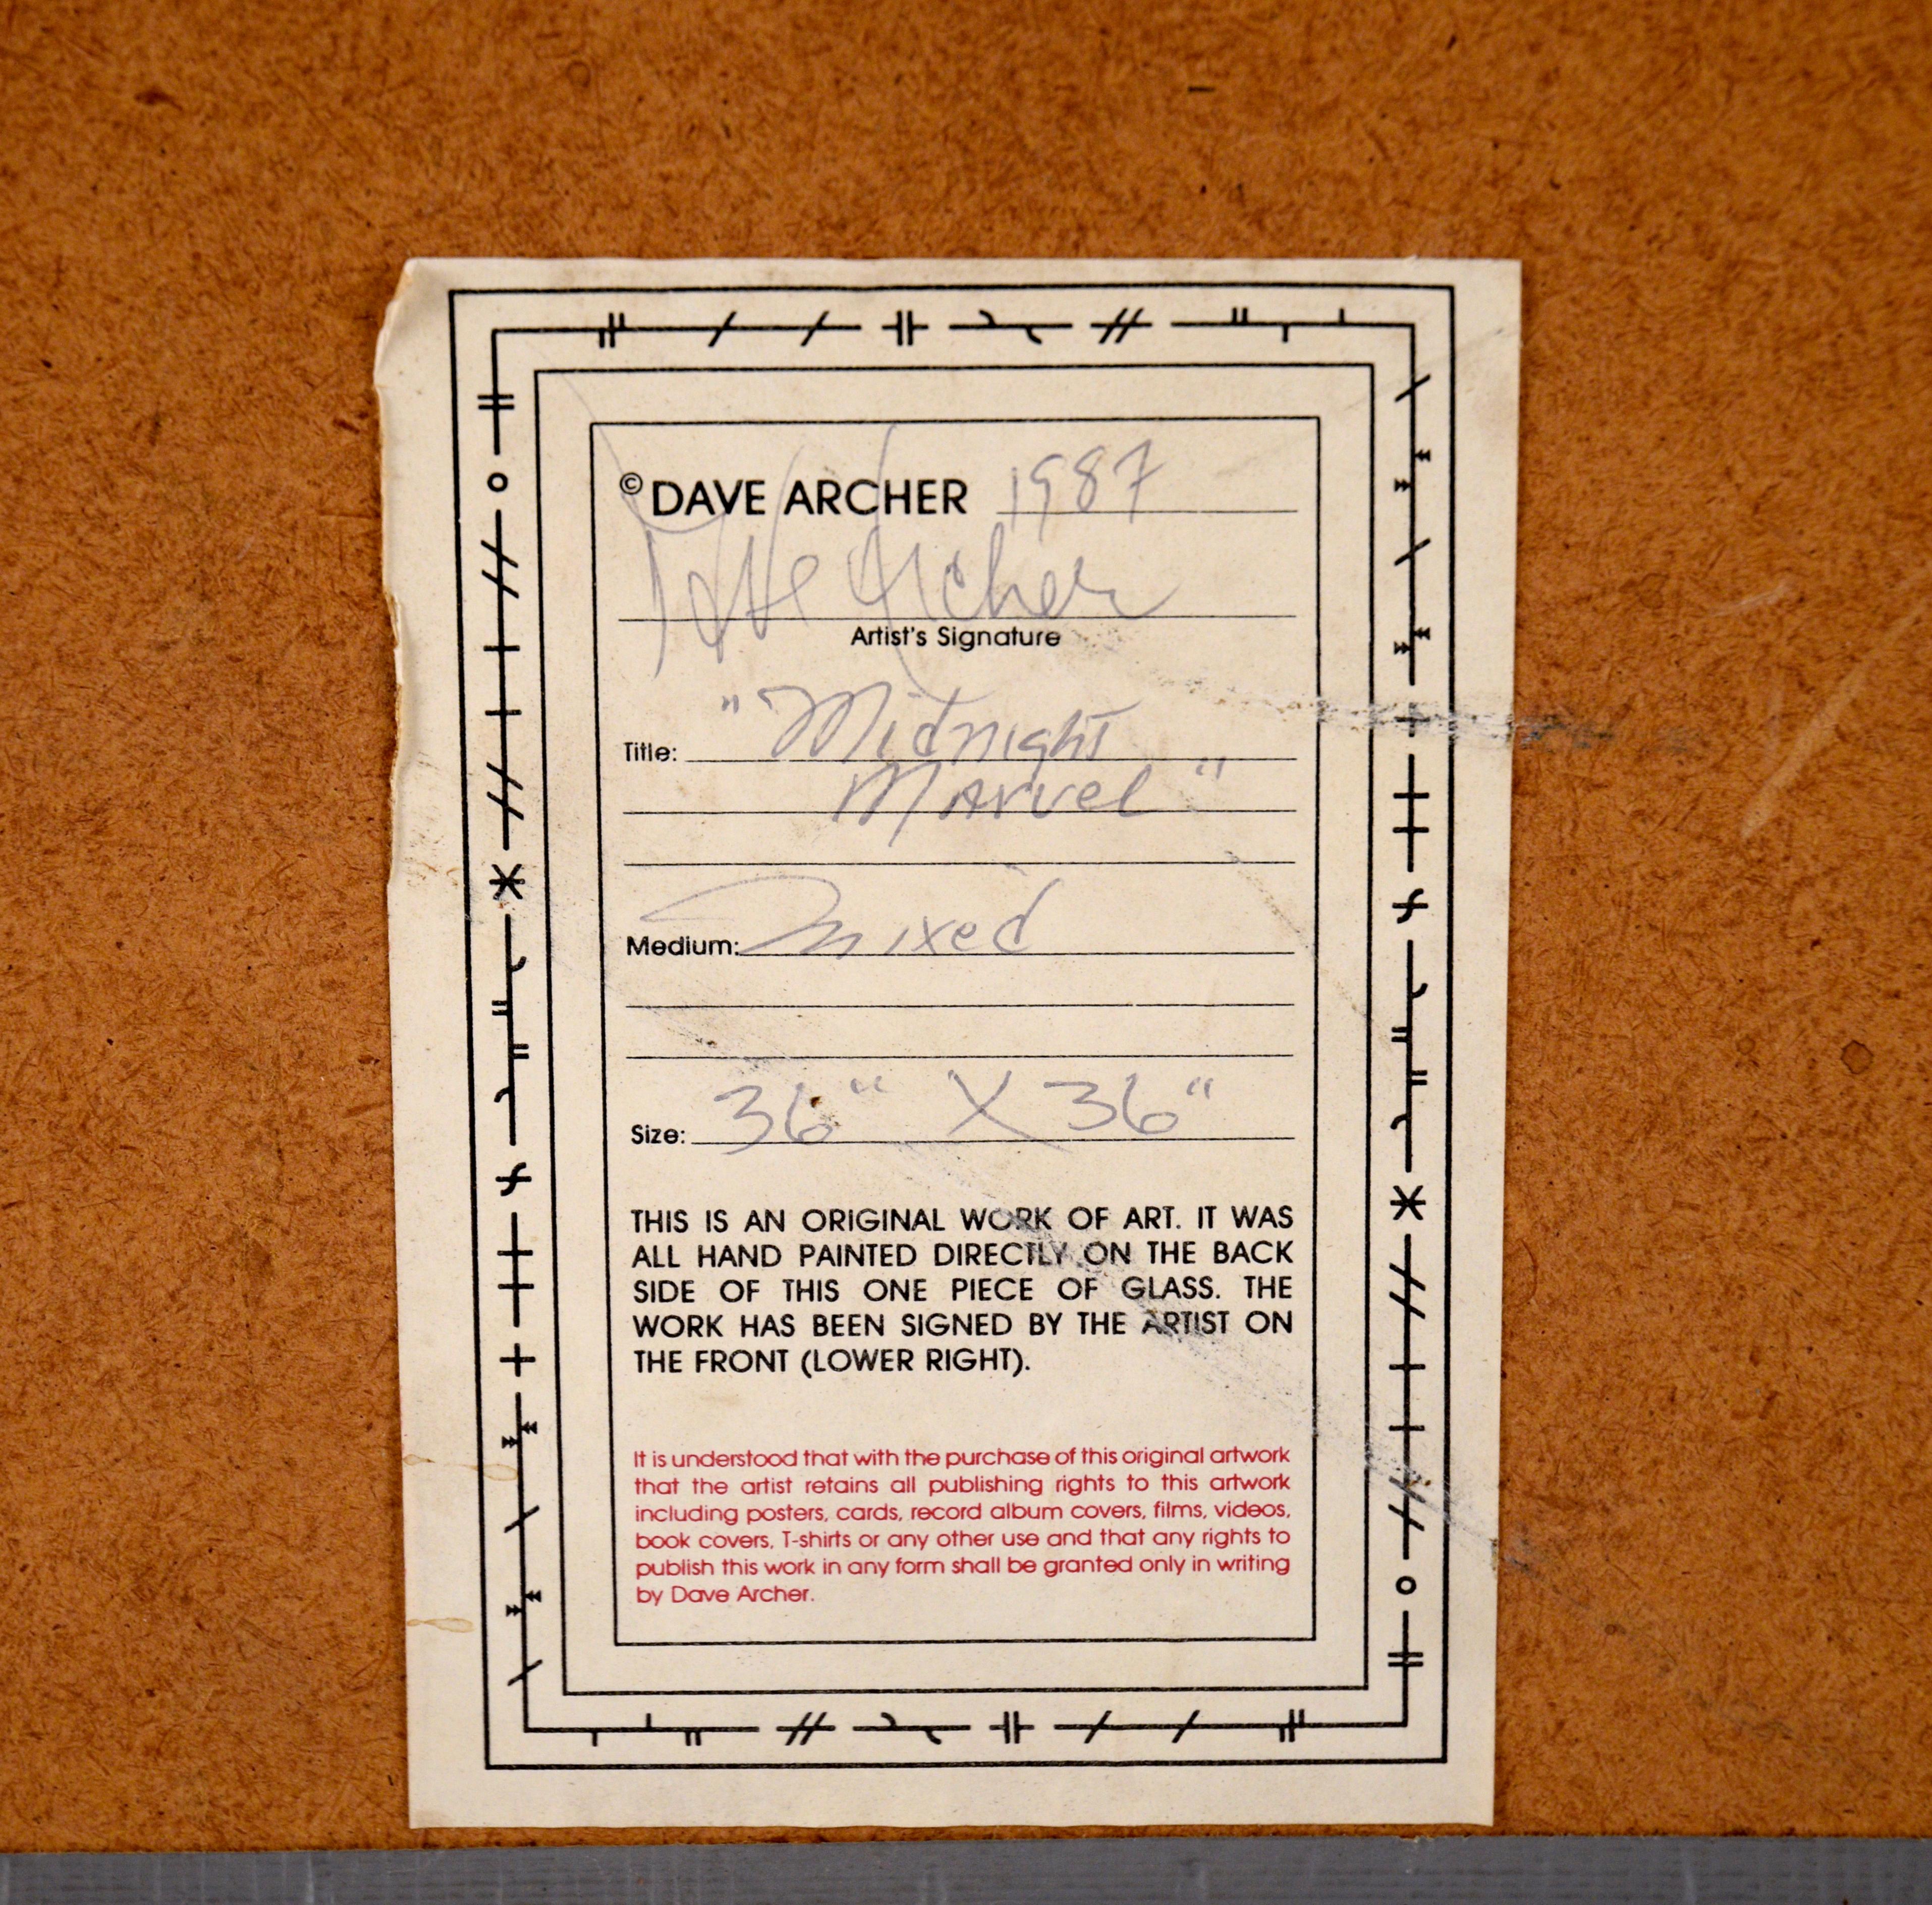 © DAVE ARCHER 1987
Dave Archer
Artist's Signature
Title: "Midnight
Marvel"
Medium: Mixed
Size: 36" X 36"
THIS IS AN ORIGINAL WORK OF ART. IT WAS
ALL HAND PAINTED DIRECTLY ON THE BACK
SIDE OF THIS ONE PIECE OF GLASS. THE
WORK HAS BEEN SIGNED BY THE ARTIST ON
THE FRONT (LOWER RIGHT).
It is understood that with the purchase of this original artwork
that the artist retains all publishing rights to this artwork
including posters, cards, record album covers, films, videos,
book covers, T-shirts or any other use and that any rights to
publish this work in any form shall be granted only in writing
by Dave Archer.